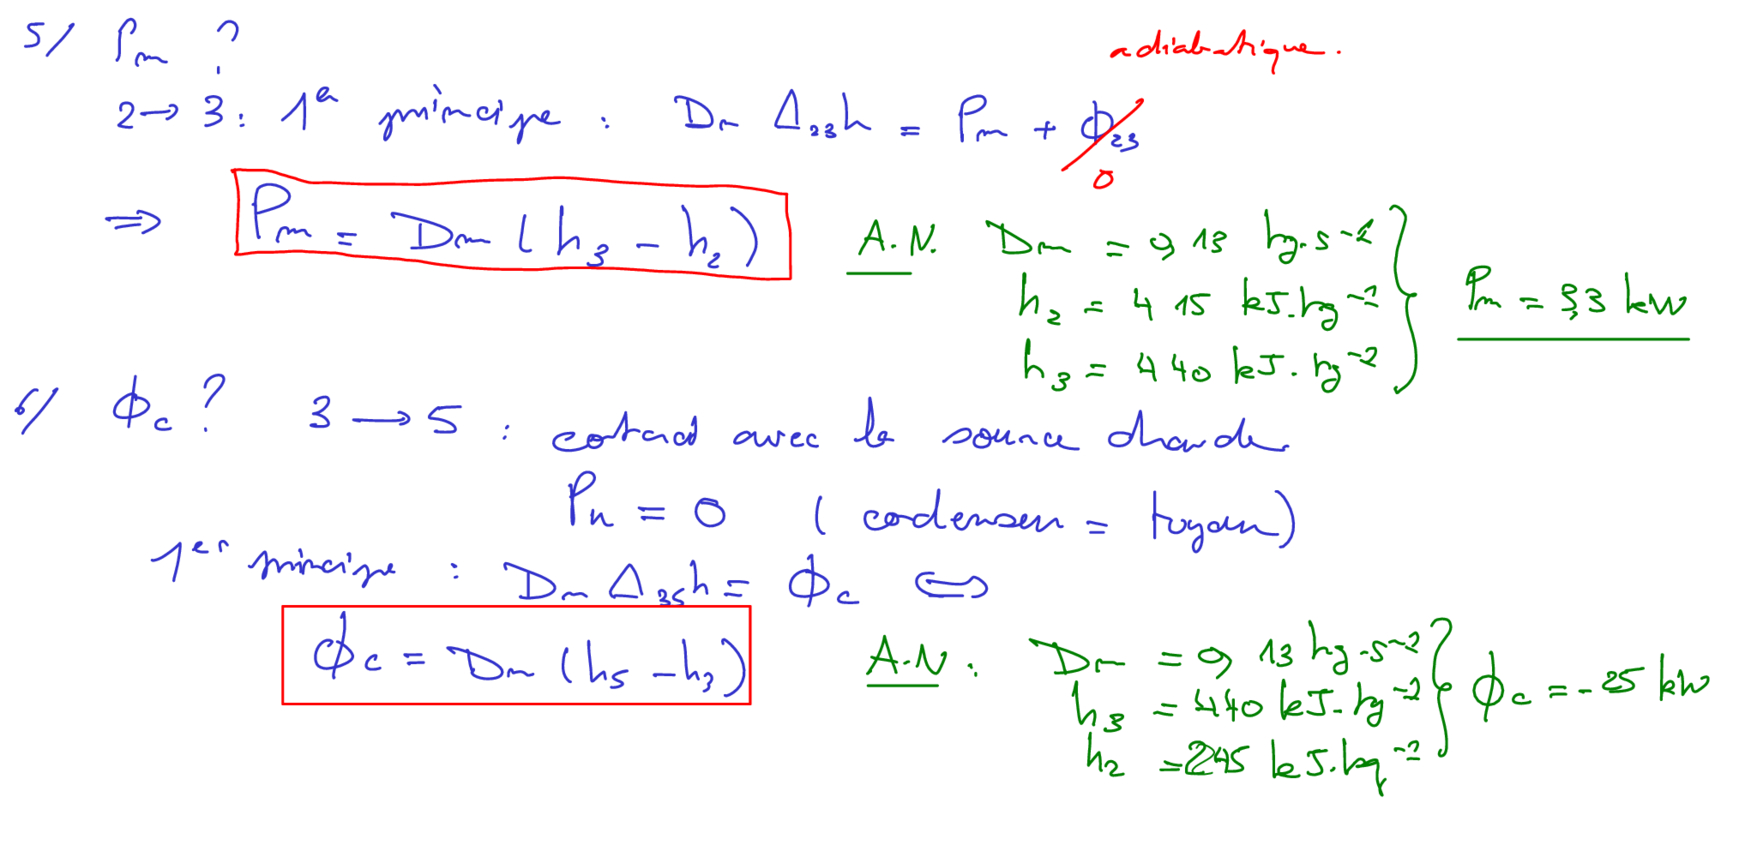 5/ Pm ?
adiabatique.
2 → 3 : 1er principe : Dm Δ23h = Pm + Φ23
0
⇒ Pm = Dm (h3 - h2)
A.N. Dm = 0,13 kg.s-1
h2 = 415 kJ.kg-1
h3 = 440 kJ.kg-1
Pm = 3,3 kW
6/ Φc ? 3 → 5 : contact avec la source chaude
Pu = 0 (condenseur = tuyau)
1er principe : Dm Δ35h = Φc ⇔
Φc = Dm (h5 - h3)
A.N : Dm = 0,13 kg.s-1
h3 = 440 kJ.kg-1
h2 = 245 kJ.kg-1
Φc = - 25 kW